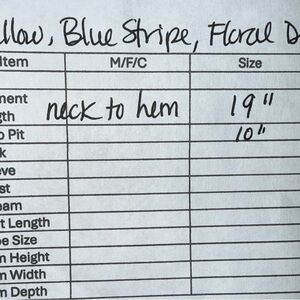 llow, Blue Stripe, Floral D
Item M/F/C Size
ment
gth neck to hem 19"
o Pit 10"
k
eve
st
eam
t Length
e Size
m Height
m Width
m Depth